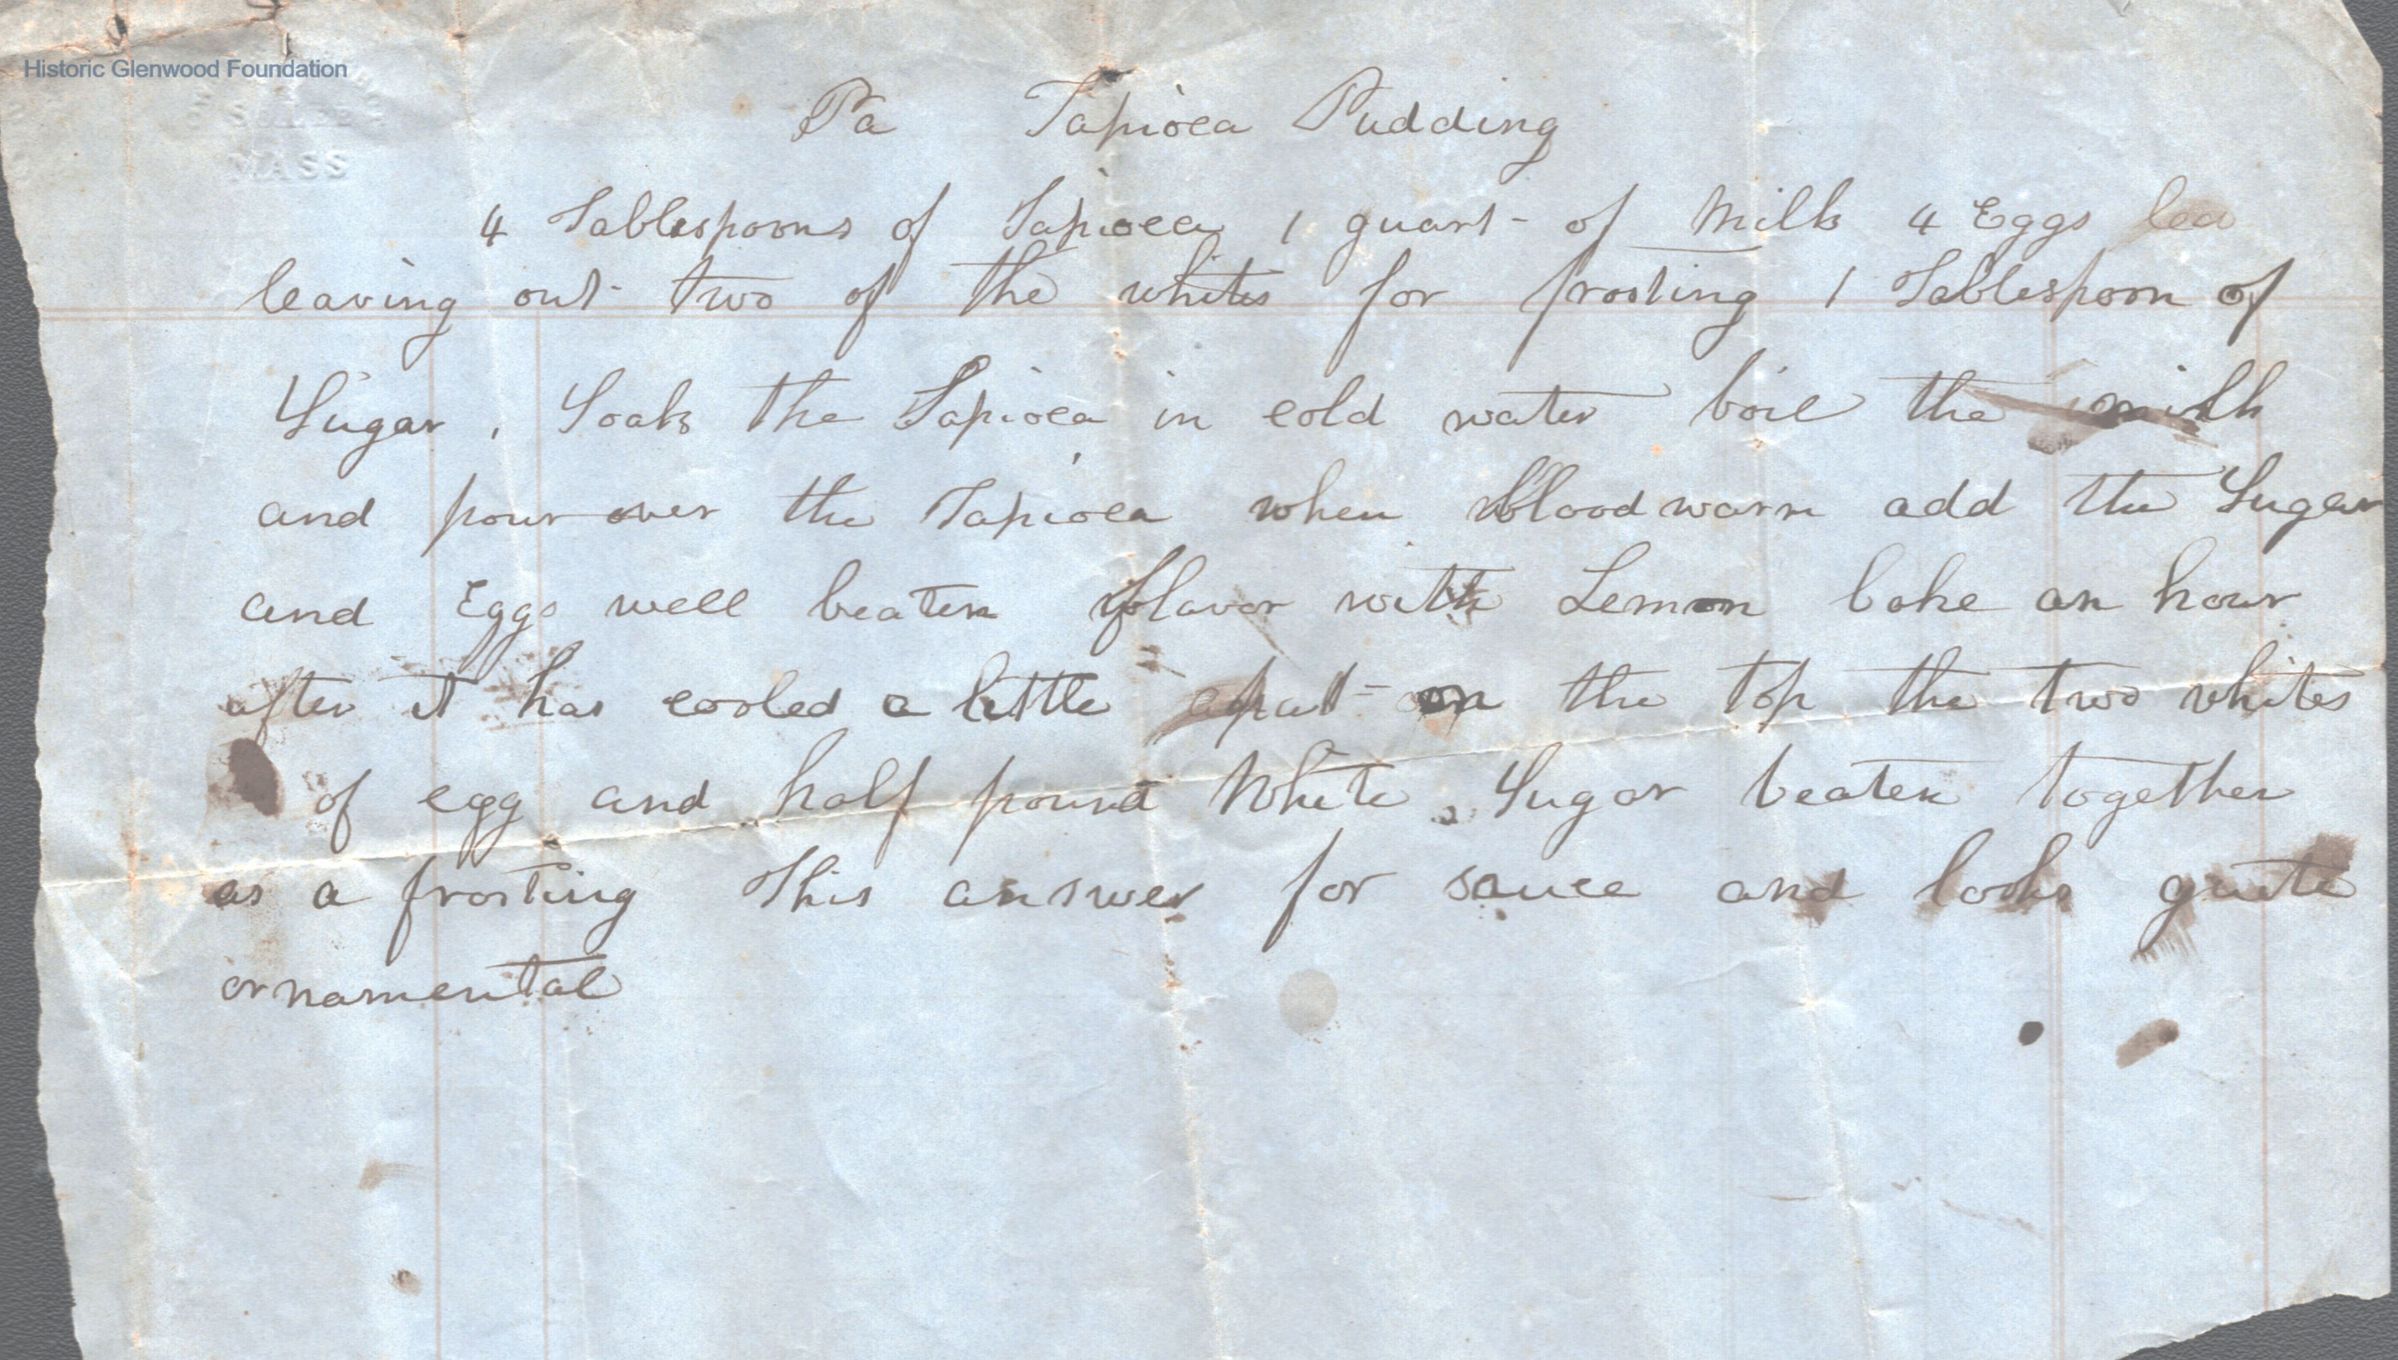 Historic Glenwood Foundation
MASS
Pa Tapioca Pudding
4 Tablespoons of Tapioca 1 quart of Milk 4 Eggs lea
leaving out two of the whites for frosting 1 Tablespoon of
Sugar, Soak the Tapioca in cold water boil the milk
and pour over the Tapioca when bloodwarm add the Sugar
and Eggs well beaten flavor with Lemon bake an hour
after it has cooled a little put on the top the two whites
of egg and half pound White Sugar beaten together
as a frosting This answer for sauce and looks quite
ornamental